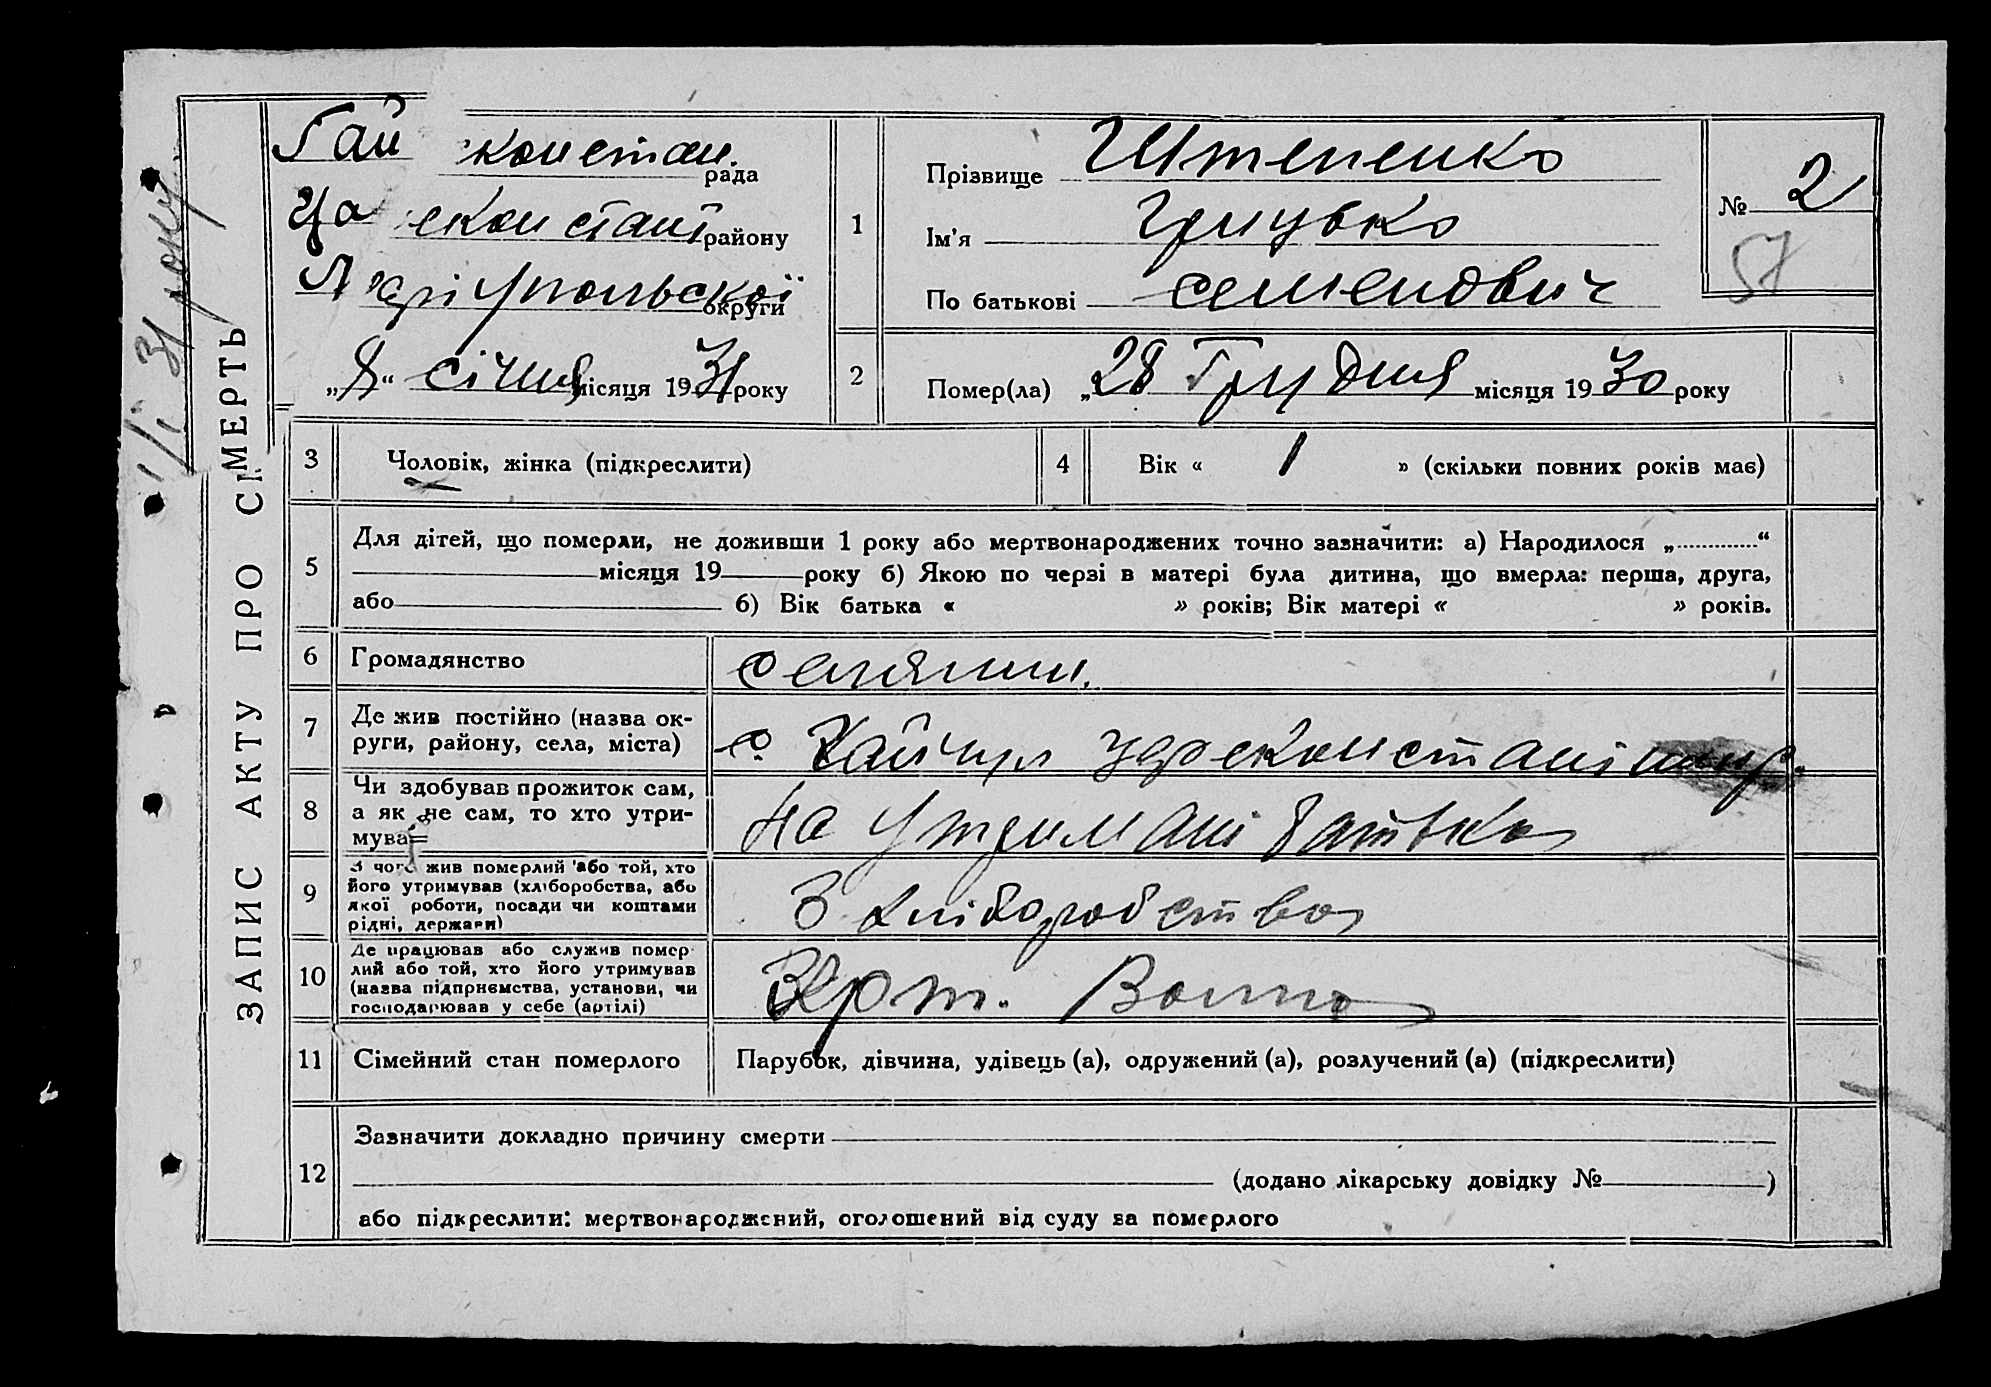 ЗАПИС АКТУ ПРО СМЕРТЬ
Гай констан.
рада
Ца екон стант району
Маріупольської
округи
„8“ січня місяця 1931 року
1
Прізвище Штепенко
Ім'я Грицько
По батькові семенович
№ 2
57
2
Помер(ла) „28 Грудня місяця 1930 року
3
Чоловік, жінка (підкреслити)
4
Вік « 1 » (скільки повних років має)
5
Для дітей, що померли, не доживши 1 року або мертвонароджених точно зазначити: а) Народилося „............“
місяця 19 року б) Якою по черзі в матері була дитина, що вмерла: перша, друга,
або б) Вік батька « » років; Вік матері « » років.
6
Громадянство
селянин.
7
Де жив постійно (назва ок-
руги, району, села, міста)
с. Хайчул Цареконстантинр.
8
Чи здобував прожиток сам,
а як не сам, то хто утри-
мував
На утриманні батька
9
З чого жив померлий або той, хто
його утримував (хліборобства, або
якої роботи, посади чи коштами
рідні, держави)
З хліборобства
10
Де працював або служив помер-
лий або той, хто його утримував
(назва підприємства, установи, чи
господарював у себе (артілі)
11
Сімейний стан померлого
Парубок, дівчина, удівець (а), одружений (а), розлучений (а) (підкреслити)
12
Зазначити докладно причину смерти
(додано лікарську довідку № )
або підкреслити: мертвонароджений, оголошений від суду за померлого